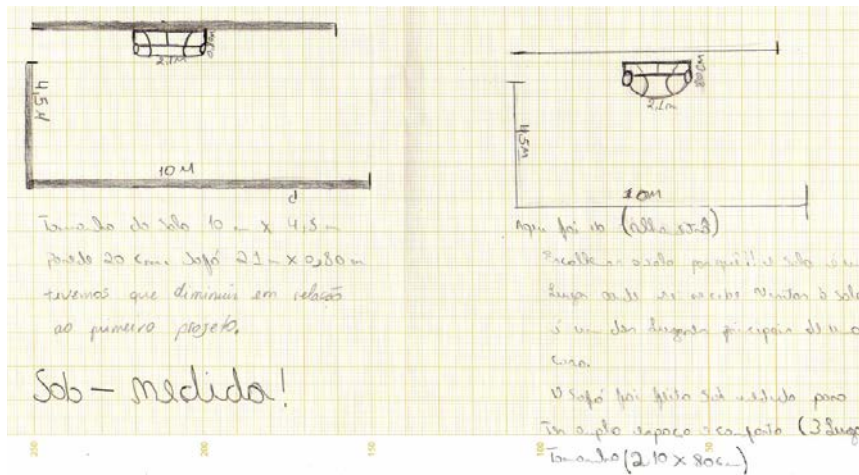 80cm
2,1M
4,5M
10M
Tamanho da sala 10 m x 4,5 m
Parede 20 cm. Sofá 2,1m x 0,80m
tivemos que diminuir em relação
ao primeiro projeto.
Sob-medida!
250
200
150
80cm
2,1m
4,5M
10M
Aqui foi
Escolhemos a sala porque!! a sala é um
lugar onde se recebe visitas a sala
é um dos lugares principais de uma
casa.
O sofá foi feito sob medida para
Ter amplo espaço e conforto (3 Luga
Tamanho (210 x 80cm)
100
50